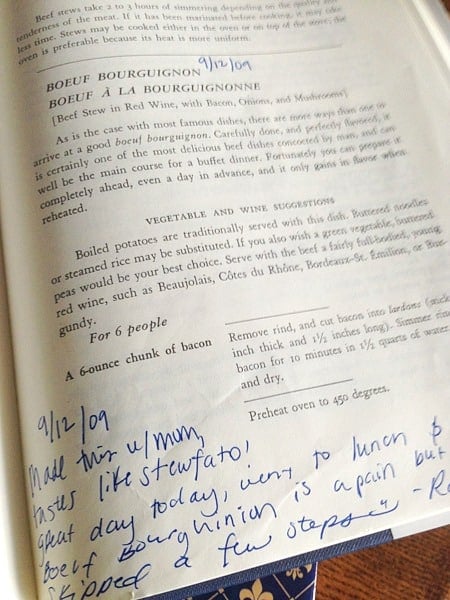 Beef stews take 2 to 3 hours of simmering depending on the quality and
tenderness of the meat. If it has been marinated before cooking, it may take
less time. Stews may be cooked either in the oven or on top of the stove; the
oven is preferable because its heat is more uniform.
9/12/09
BOEUF BOURGUIGNON
BOEUF À LA BOURGUIGNONNE
[Beef Stew in Red Wine, with Bacon, Onions, and Mushrooms]
As is the case with most famous dishes, there are more ways than one to
arrive at a good boeuf bourguignon. Carefully done, and perfectly flavored, it
is certainly one of the most delicious beef dishes concocted by man, and can
well be the main course for a buffet dinner. Fortunately you can prepare it
completely ahead, even a day in advance, and it only gains in flavor when
reheated.
VEGETABLE AND WINE SUGGESTIONS
Boiled potatoes are traditionally served with this dish. Buttered noodles
or steamed rice may be substituted. If you also wish a green vegetable, buttered
peas would be your best choice. Serve with the beef a fairly full-bodied, young
red wine, such as Beaujolais, Côtes du Rhône, Bordeaux-St. Émilion, or Bur-
gundy.
For 6 people
A 6-ounce chunk of bacon
Remove rind, and cut bacon into lardons (sticks
inch thick and 1½ inches long). Simmer rind
bacon for 10 minutes in 1½ quarts of water
and dry.
Preheat oven to 450 degrees.
9/12/09
Made this w/mom,
tastes like stewfato!
great day today, went to lunch &
Boeuf Bourguinion is a pain but
skipped a few steps -